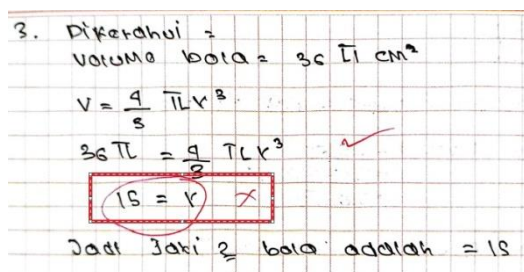 3. Diketahui =
Volume bola = 36 π cm²
V = 4/3 πr³
36 π = 4/3 πr³ ✓
15 = r ×
Jadi Jari 2 bola adalah = 15